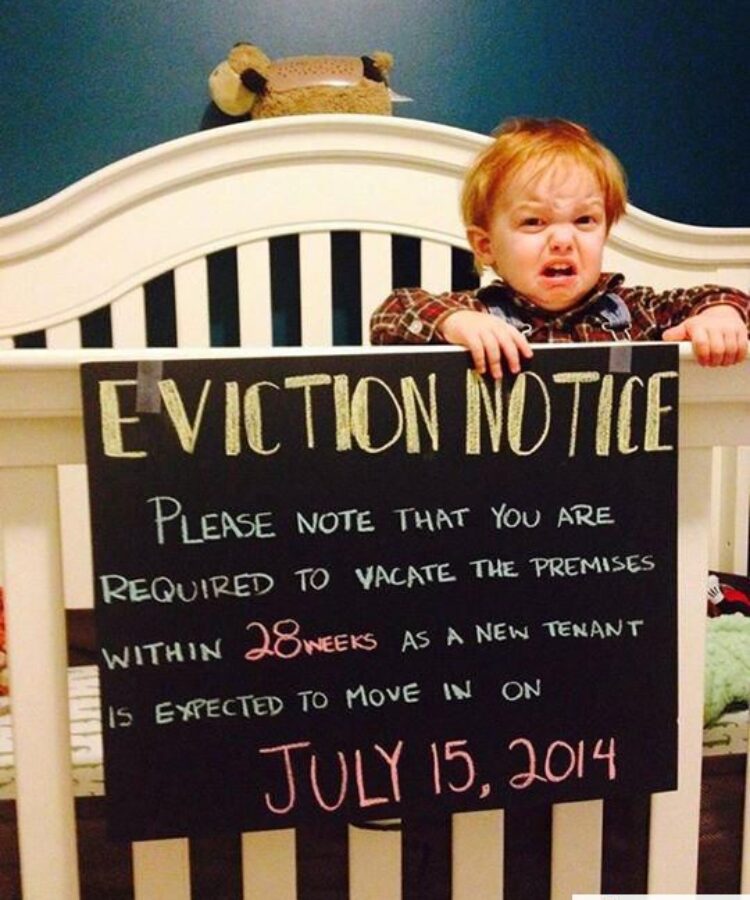 EVICTION NOTICE
PLEASE NOTE THAT YOU ARE
REQUIRED TO VACATE THE PREMISES
WITHIN 28 WEEKS AS A NEW TENANT
IS EXPECTED TO MOVE IN ON
JULY 15, 2014